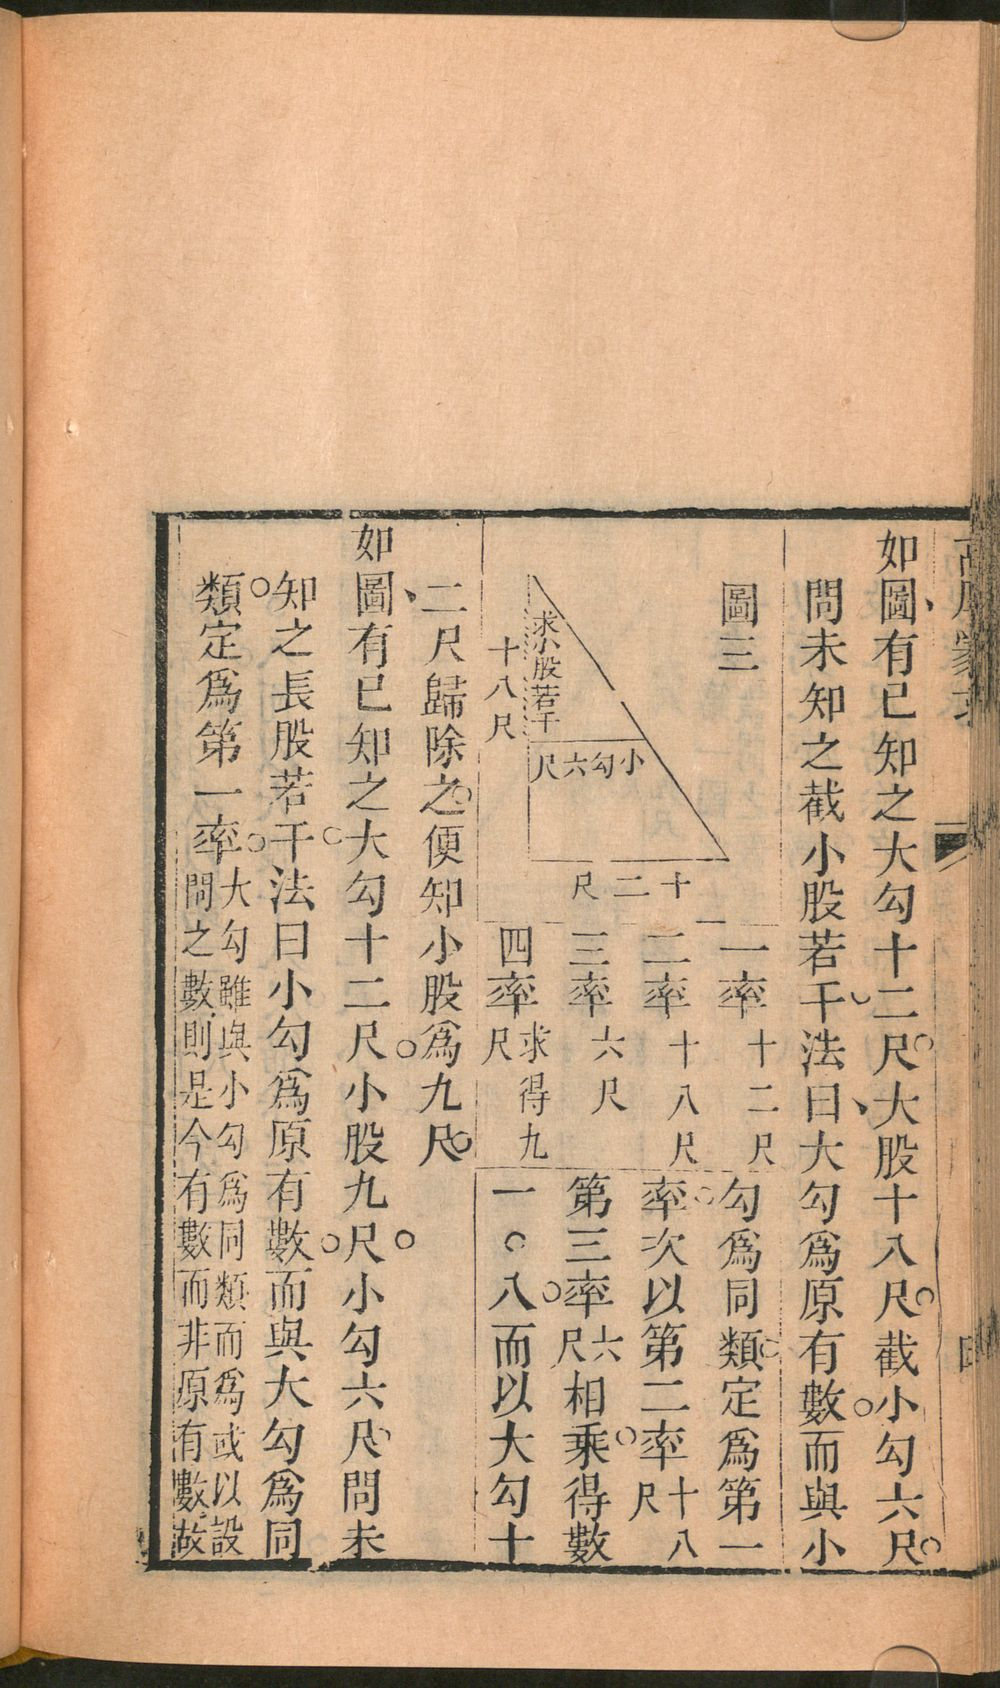 如圖有已知之大勾十二尺大股十八尺截小勾六尺
問未知之截小股若干法曰大勾爲原有數而與小
圖三
求小股若干
十八尺
小勾六尺
十二尺
一率 十二尺
二率 十八尺
三率 六尺
四率 求得九尺
勾爲同類定爲第一
率次以第二率十八尺
第三率六尺相乘得數
一〇八而以大勾十
二尺歸除之便知小股爲九尺
如圖有已知之大勾十二尺小股九尺小勾六尺問未
知之長股若干法曰小勾爲原有數而與大勾爲同
類定爲第一率大勾雖與小勾爲同類而爲或以設
問之數則是今有數而非原有數故